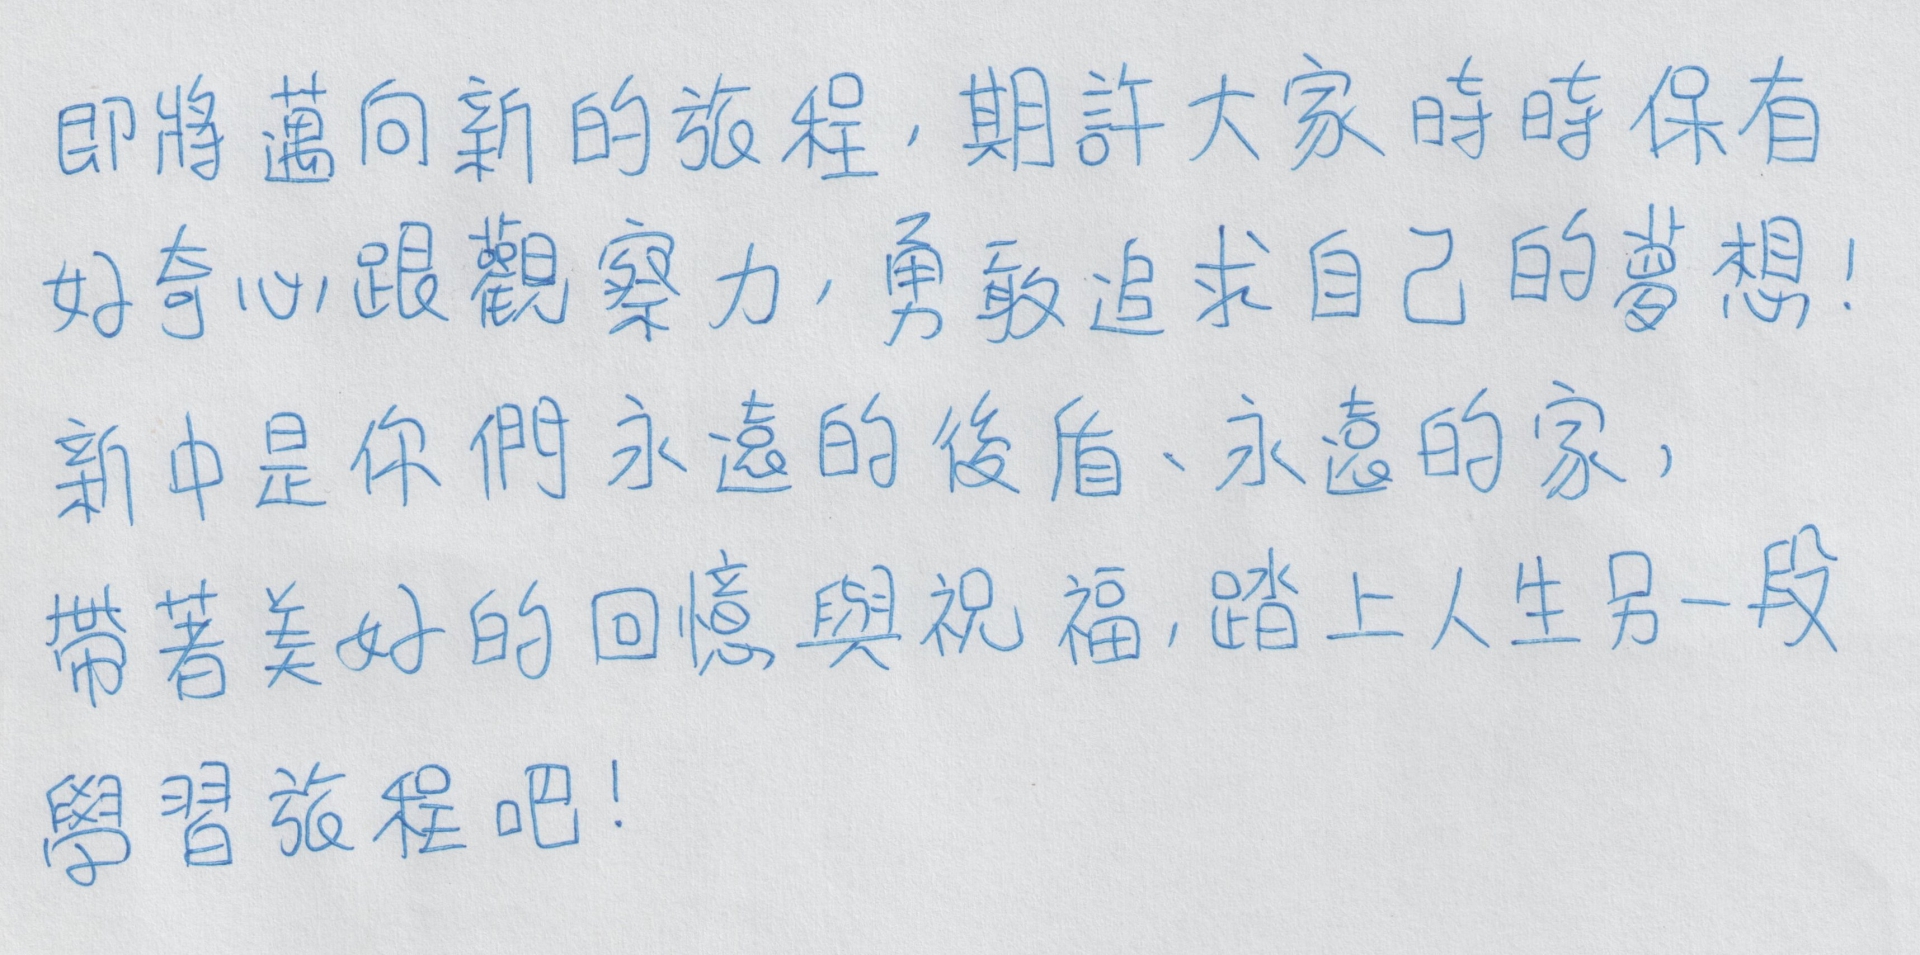 即將邁向新的旅程，期許大家時時保有
好奇心跟觀察力，勇敢追求自己的夢想！
新中是你們永遠的後盾、永遠的家，
帶著美好的回憶與祝福，踏上人生另一段
學習旅程吧！